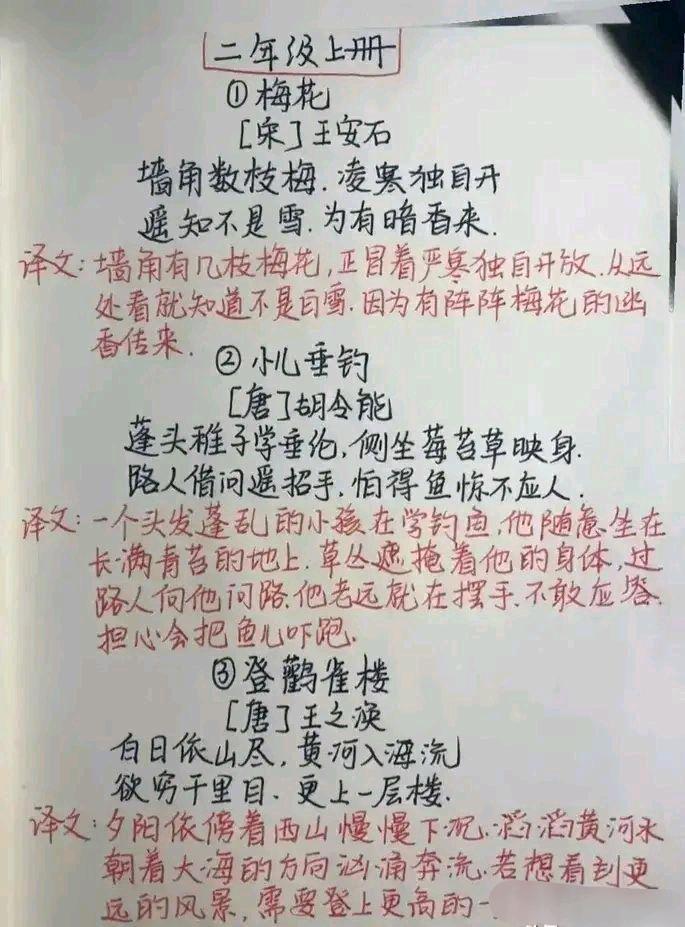 二年级上册
①梅花
[宋]王安石
墙角数枝梅.凌寒独自开
遥知不是雪.为有暗香来.
译文:墙角有几枝梅花,正冒着严寒独自开放.从远
处看就知道不是白雪.因为有阵阵梅花的幽
香传来.
②小儿垂钓
[唐]胡令能
蓬头稚子学垂纶,侧坐莓苔草映身.
路人借问遥招手.怕得鱼惊不应人.
译文:一个头发蓬乱的小孩在学钓鱼,他随意坐在
长满青苔的地上.草丛遮掩着他的身体,过
路人向他问路.他老远就在摆手.不敢应答.
担心会把鱼儿吓跑.
③登鹳雀楼
[唐]王之涣
白日依山尽,黄河入海流
欲穷千里目.更上一层楼.
译文:夕阳依傍着西山慢慢下沉.滔滔黄河水
朝着大海的方向汹涌奔流.若想看到更
远的风景,需要登上更高的一